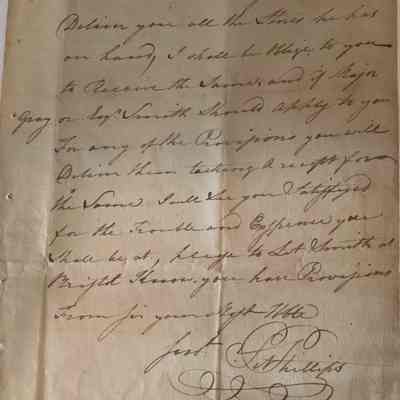 Deliver you all the Stores he has
on hand, I shall be Oblige to you
to Receive the Same and if Major
Gray or Esqr Smith Should apply to you
For any of the Provisions you will
Deliver them takeing A recept for
the Same I will See you Satisfyed
for the Trouble and Expence you
Shall be at, please to Let Smith at
Bright Know you have Provisions
From Sir your Most Hble
Servt Phillips